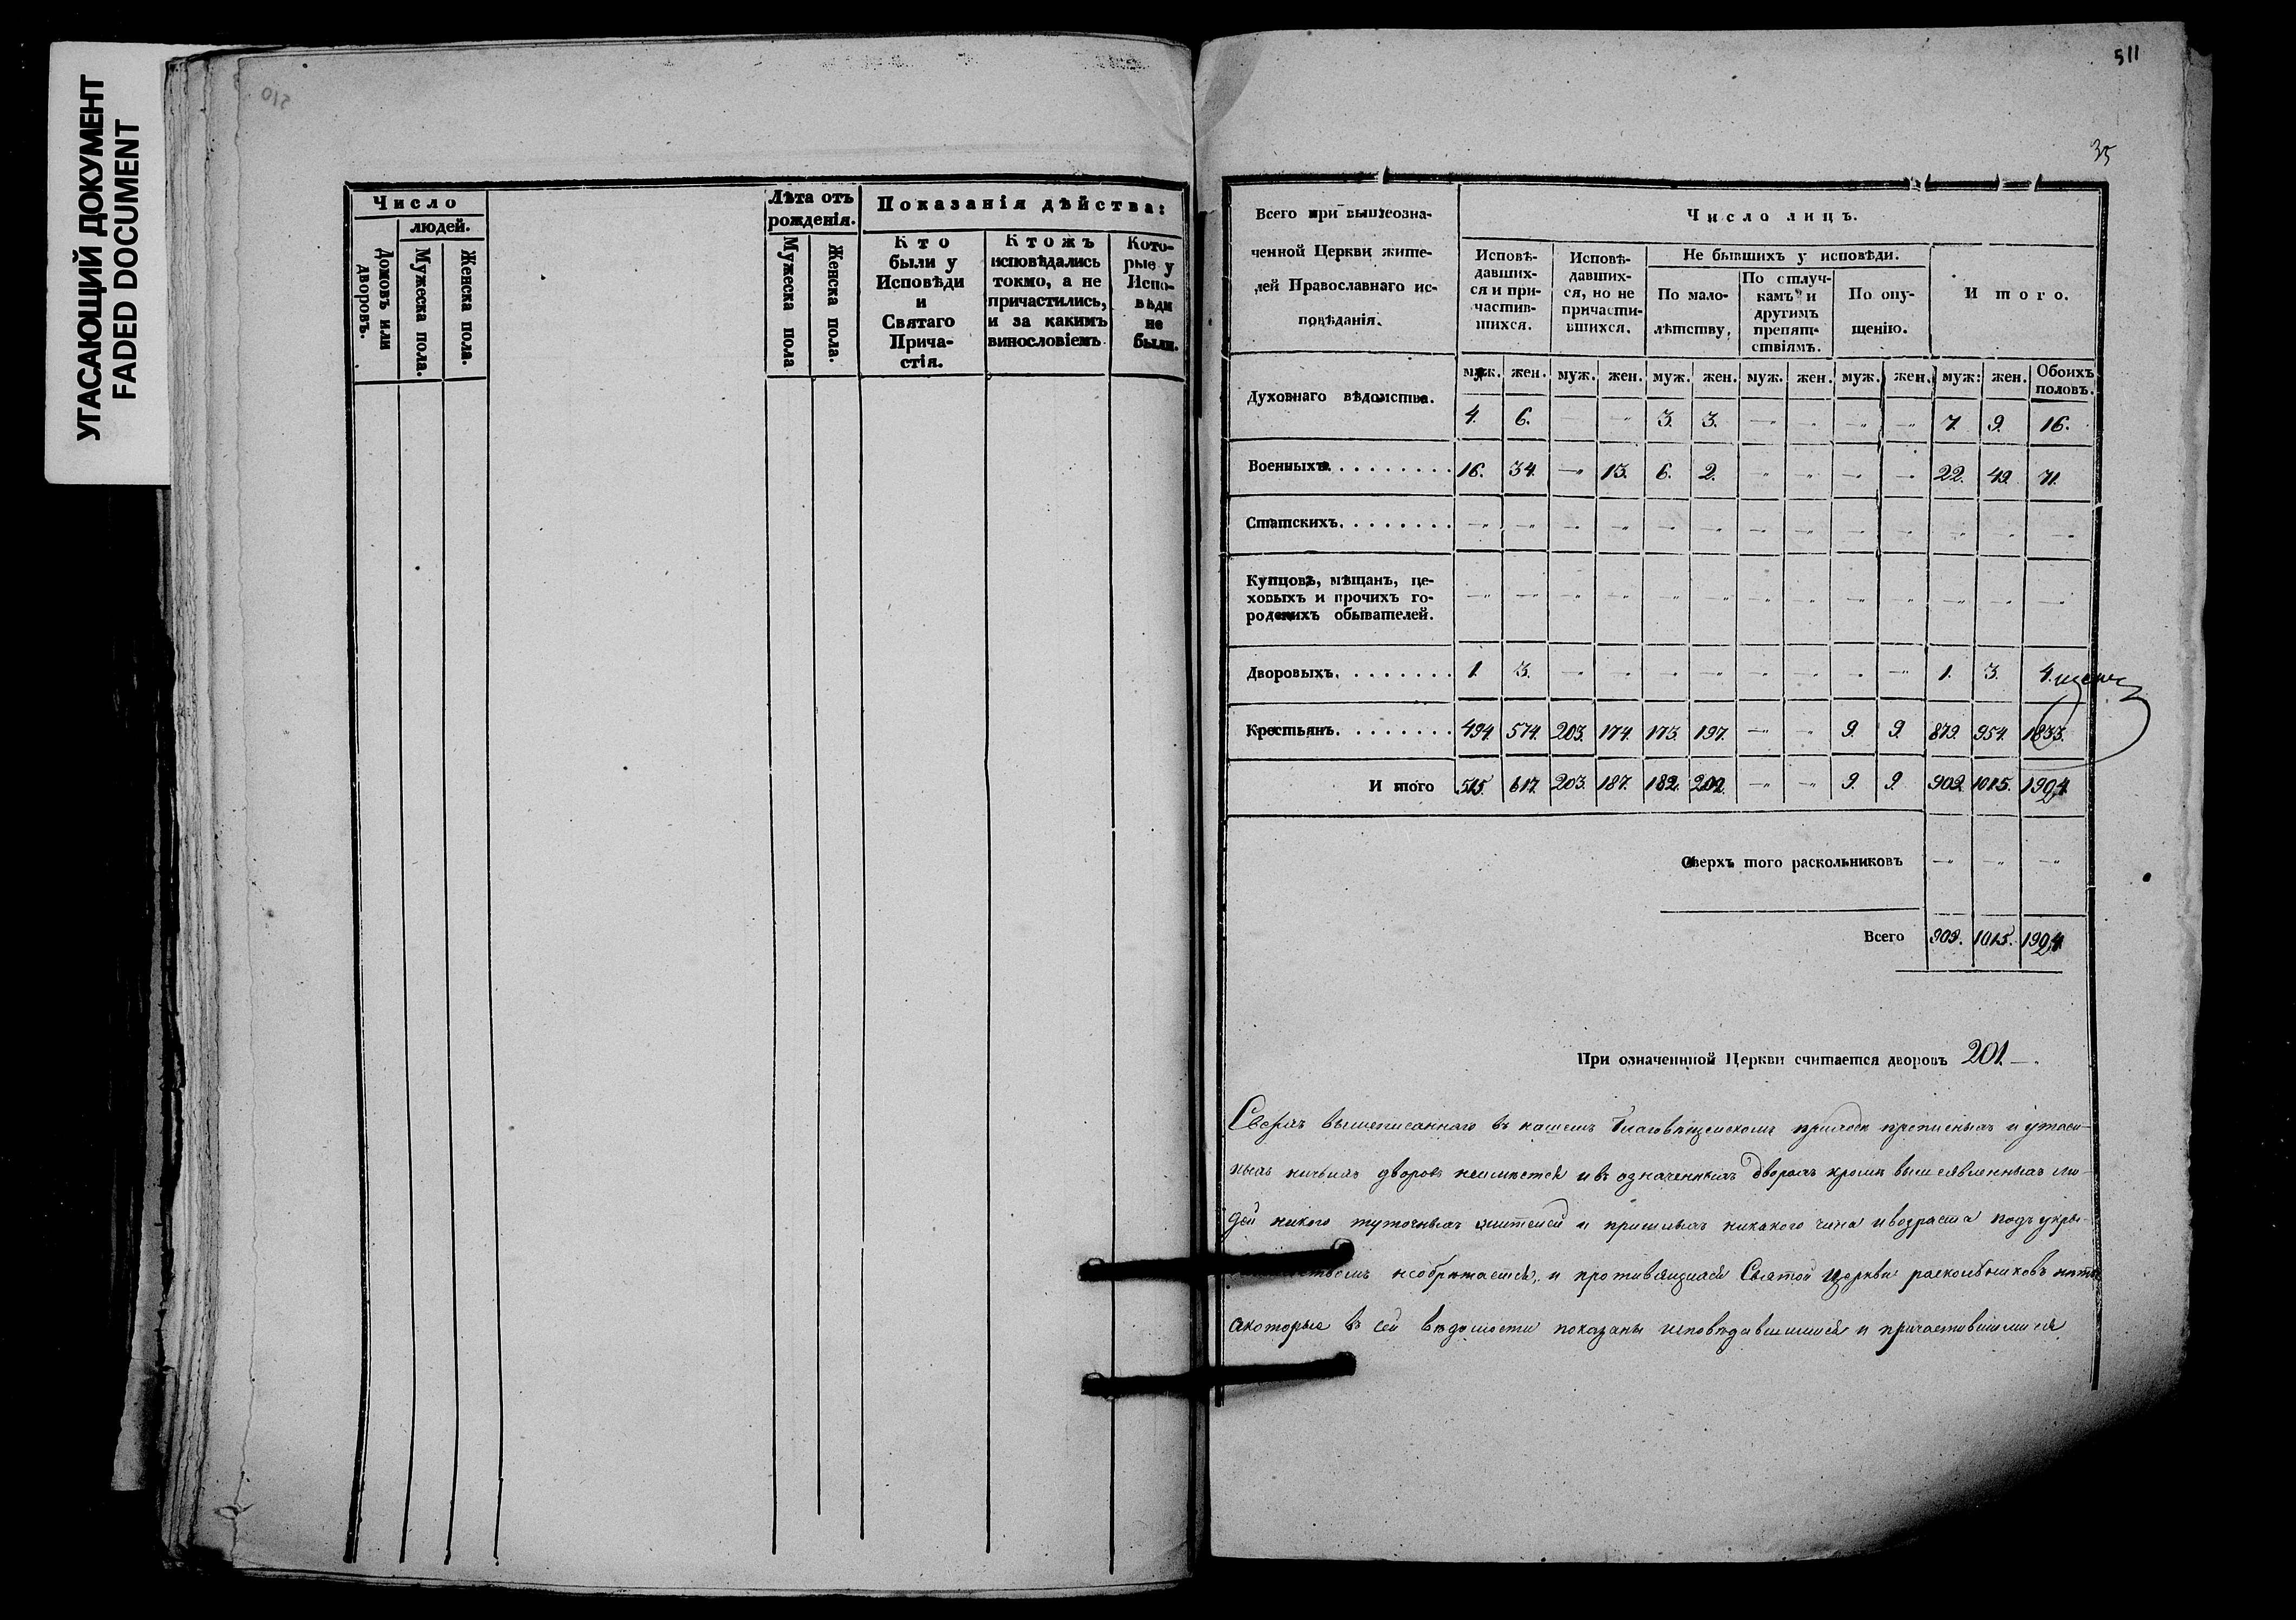 УГАСАЮЩИЙ ДОКУМЕНТ
FADED DOCUMENT
510
Число
людей.
Домовъ или дворовъ.
Мужеска пола.
Женска пола.
Лѣта отъ
рожденія.
Мужеска пола
Женска пола.
Показанія дѣйства:
Кто
были у
Исповѣди
и
Святаго
Прича-
стія.
Ктожъ
исповѣдались
токмо, а не
причастились,
и за какимъ
винословіемъ
Кото-
рые у
Испо-
вѣди
не
были.
511
35
Всего при вышеозна-
ченной Церкви жите-
лей Православнаго ис-
повѣданія.
Число лицъ.
Исповѣ-
давших-
ся и при-
частив-
шихся.
Исповѣ-
давших-
ся, но не
причасти-
вшихся.
Не бывшихъ у исповѣди.
По мало-
лѣтству.
По отлуч-
камъ и
другимъ
препят-
ствіямъ.
По опу-
щенію.
Итого.
муж. жен. муж. жен. муж. жен. муж. жен. муж. жен. муж: жен. Обоихъ половъ.
Духовнаго вѣдомства. 4. 6. — — 3. 3. — — — — 7. 9. 16.
Военныхъ. 16. 34. — 13. 6. 2. — — — — 22. 49. 71.
Статскихъ. — — — — — — — — — — — — —
Купцовъ, мѣщанъ, це-
ховыхъ и прочихъ го-
родскихъ обывателей. — — — — — — — — — — — — —
Дворовыхъ. 1. 3. — — — — — — — — 1. 3. 4.
Крестьянъ. 494. 574. 203. 174. 173. 197. — — 9. 9. 879. 954. 1833.
Итого 515. 617. 203. 187. 182. 202. — — 9. 9. 909. 1015. 1924.
Сверхъ того раскольниковъ — — —
Всего 909. 1015. 1924.
При означеннной Церкви считается дворовъ 201.—
Сверхъ вышеписаннаго въ нашемъ Благовѣщенскомъ приходѣ прописныхъ и утаен-
ныхъ ничьихъ дворовъ неимѣется и въ означенныхъ дворахъ кромѣ вышеявленныхъ лю-
дей никого туточныхъ жителей и пришлыхъ никакого чина и возраста подъ укры-
необрѣтается, и противящихся Святой Церкви раскольниковъ нѣтъ
а которые въ сей вѣдомости показаны исповѣдавшимися и причастившимися